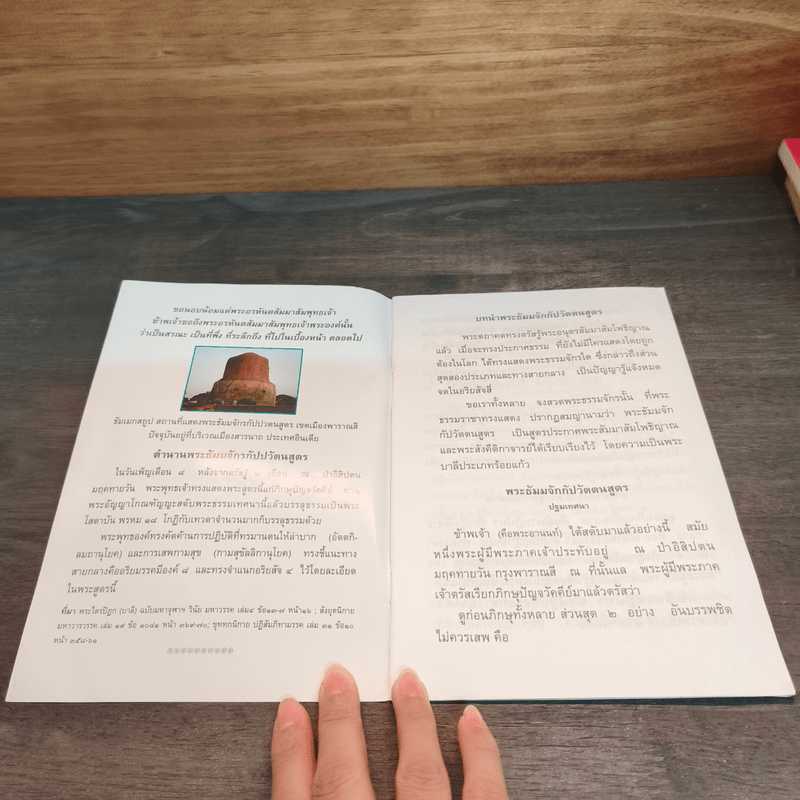 ขอนอบน้อมแด่พระอรหันตสัมมาสัมพุทธเจ้า
ข้าพเจ้าขอถึงพระอรหันตสัมมาสัมพุทธเจ้าพระองค์นั้น
ว่าเป็นสรณะ เป็นที่พึ่ง ที่ระลึกถึง ที่ไปในเบื้องหน้า ตลอดไป
ธัมเมกสถูป สถานที่แสดงพระธัมมจักรกัปปวัตนสูตร เขตเมืองพาราณสี
ปัจจุบันอยู่ที่บริเวณเมืองสารนาถ ประเทศอินเดีย
ตำนานพระธัมมจักรกัปปวัตนสูตร
ในวันเพ็ญเดือน ๘ หลังจากตรัสรู้ ๒ เดือน ณ ป่าอิสิปตน
มฤคทายวัน พระพุทธเจ้าทรงแสดงพระสูตรนี้แก่ภิกษุปัญจวัคคีย์ ท่าน
พระอัญญาโกณฑัญญะสดับพระธรรมเทศนานี้แล้วบรรลุธรรมเป็นพระ
โสดาบัน พรหม ๑๘ โกฏิกับเทวดาจำนวนมากก็บรรลุธรรมด้วย
พระพุทธองค์ทรงคัดค้านการปฏิบัติที่ทรมานตนให้ลำบาก (อัตตกิ-
ลมถานุโยค) และการเสพกามสุข (กามสุขัลลิกานุโยค) ทรงชี้แนะทาง
สายกลางคืออริยมรรคมีองค์ ๘ และทรงจำแนกอริยสัจ ๔ ไว้โดยละเอียด
ในพระสูตรนี้
ที่มา พระไตรปิฎก (บาลี) ฉบับมหาจุฬาฯ วินัย มหาวรรค เล่ม๔ ข้อ๑๓-๗ หน้า๑๖ ; สังยุตนิกาย
มหาวารวรรค เล่ม ๑๙ ข้อ ๑๐๘๑ หน้า ๓๖๙-๗๐; ขุททกนิกาย ปฏิสัมภิทามรรค เล่ม ๓๑ ข้อ๑๐
หน้า ๓๕๘-๖๑
บทนำพระธัมมจักกัปปวัตตนสูตร
พระตถาคตทรงตรัสรู้พระอนุตรสัมมาสัมโพธิญาณ
แล้ว เมื่อจะทรงประกาศธรรม ที่ยังไม่มีใครแสดงโดยถูก
ต้องในโลก ได้ทรงแสดงพระธรรมจักรใด ซึ่งกล่าวถึงส่วน
สุดสองประเภทและทางสายกลาง เป็นปัญญารู้แจ้งหมด
จดในอริยสัจสี่
ขอเราทั้งหลาย จงสวดพระธรรมจักรนั้น ที่พระ
ธรรมราชาทรงแสดง ปรากฏสมญานามว่า พระธัมมจัก
กัปปวัตตนสูตร เป็นสูตรประกาศพระสัมมาสัมโพธิญาณ
และพระสังคีติกาจารย์ได้เรียบเรียงไว้ โดยความเป็นพระ
บาลีประเภทร้อยแก้ว
พระธัมมจักกัปปวัตตนสูตร
ปฐมเทศนา
ข้าพเจ้า (คือพระอานนท์) ได้สดับมาแล้วอย่างนี้ สมัย
หนึ่งพระผู้มีพระภาคเจ้าประทับอยู่ ณ ป่าอิสิปตน
มฤคทายวัน กรุงพาราณสี ณ ที่นั้นแล พระผู้มีพระภาค
เจ้าตรัสเรียกภิกษุปัญจวัคคีย์มาแล้วตรัสว่า
ดูก่อนภิกษุทั้งหลาย ส่วนสุด ๒ อย่าง อันบรรพชิต
ไม่ควรเสพ คือ